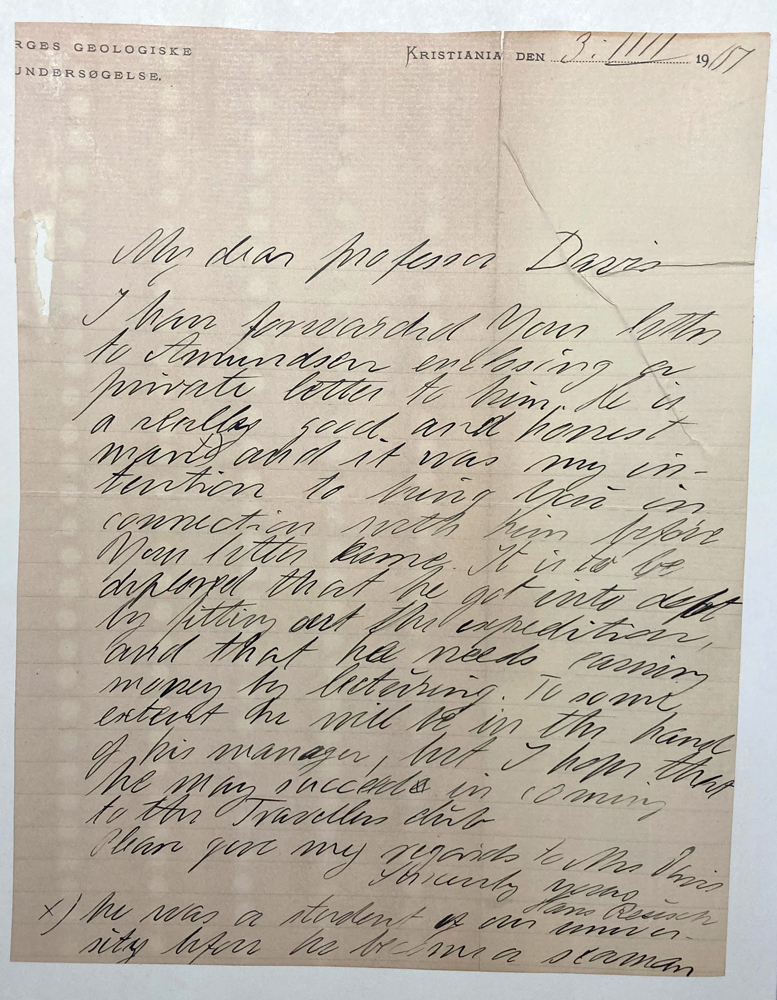 RGES GEOLOGISKE
UNDERSØGELSE.
KRISTIANIA DEN 3: IIII 1907
My dear professor Davis
I have forwarded Your letter
to Amundsen enclosing a
private letter to him. He is
a really good and honest
man x) and it was my in-
tention to bring You in
connection with him before
Your letter came. It is to be
deplored that he got into debt
by fitting out the expedition,
and that he needs earning
money by lecturing. To some
extent he will be in the hand
of his manager, but I hope that
he may succede in coming
to the Travellers club
Please give my regards to Mrs Davis
Sincerely yours
Hans Reusch
x) he was a student of our univer-
sity before he became a seaman